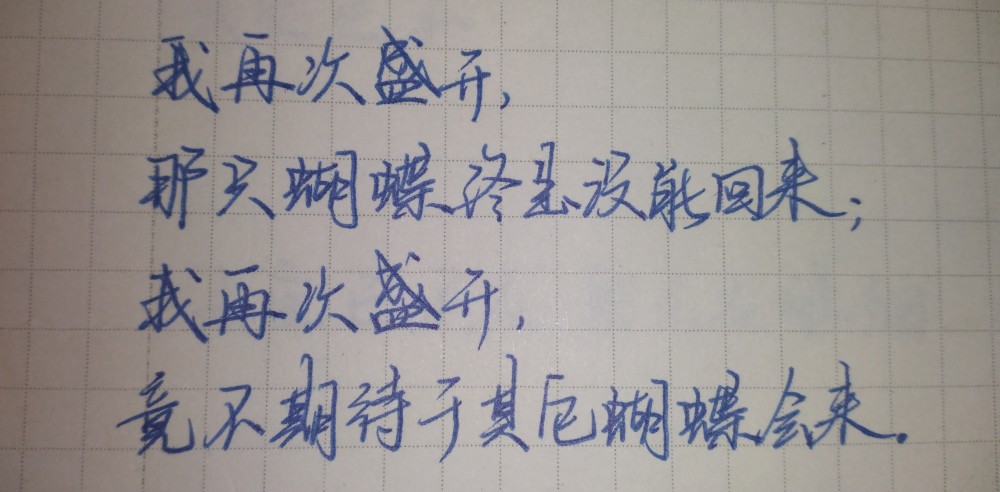 我再次盛开,
那只蝴蝶终是没能回来;
我再次盛开,
竟不期待于其它蝴蝶会来.